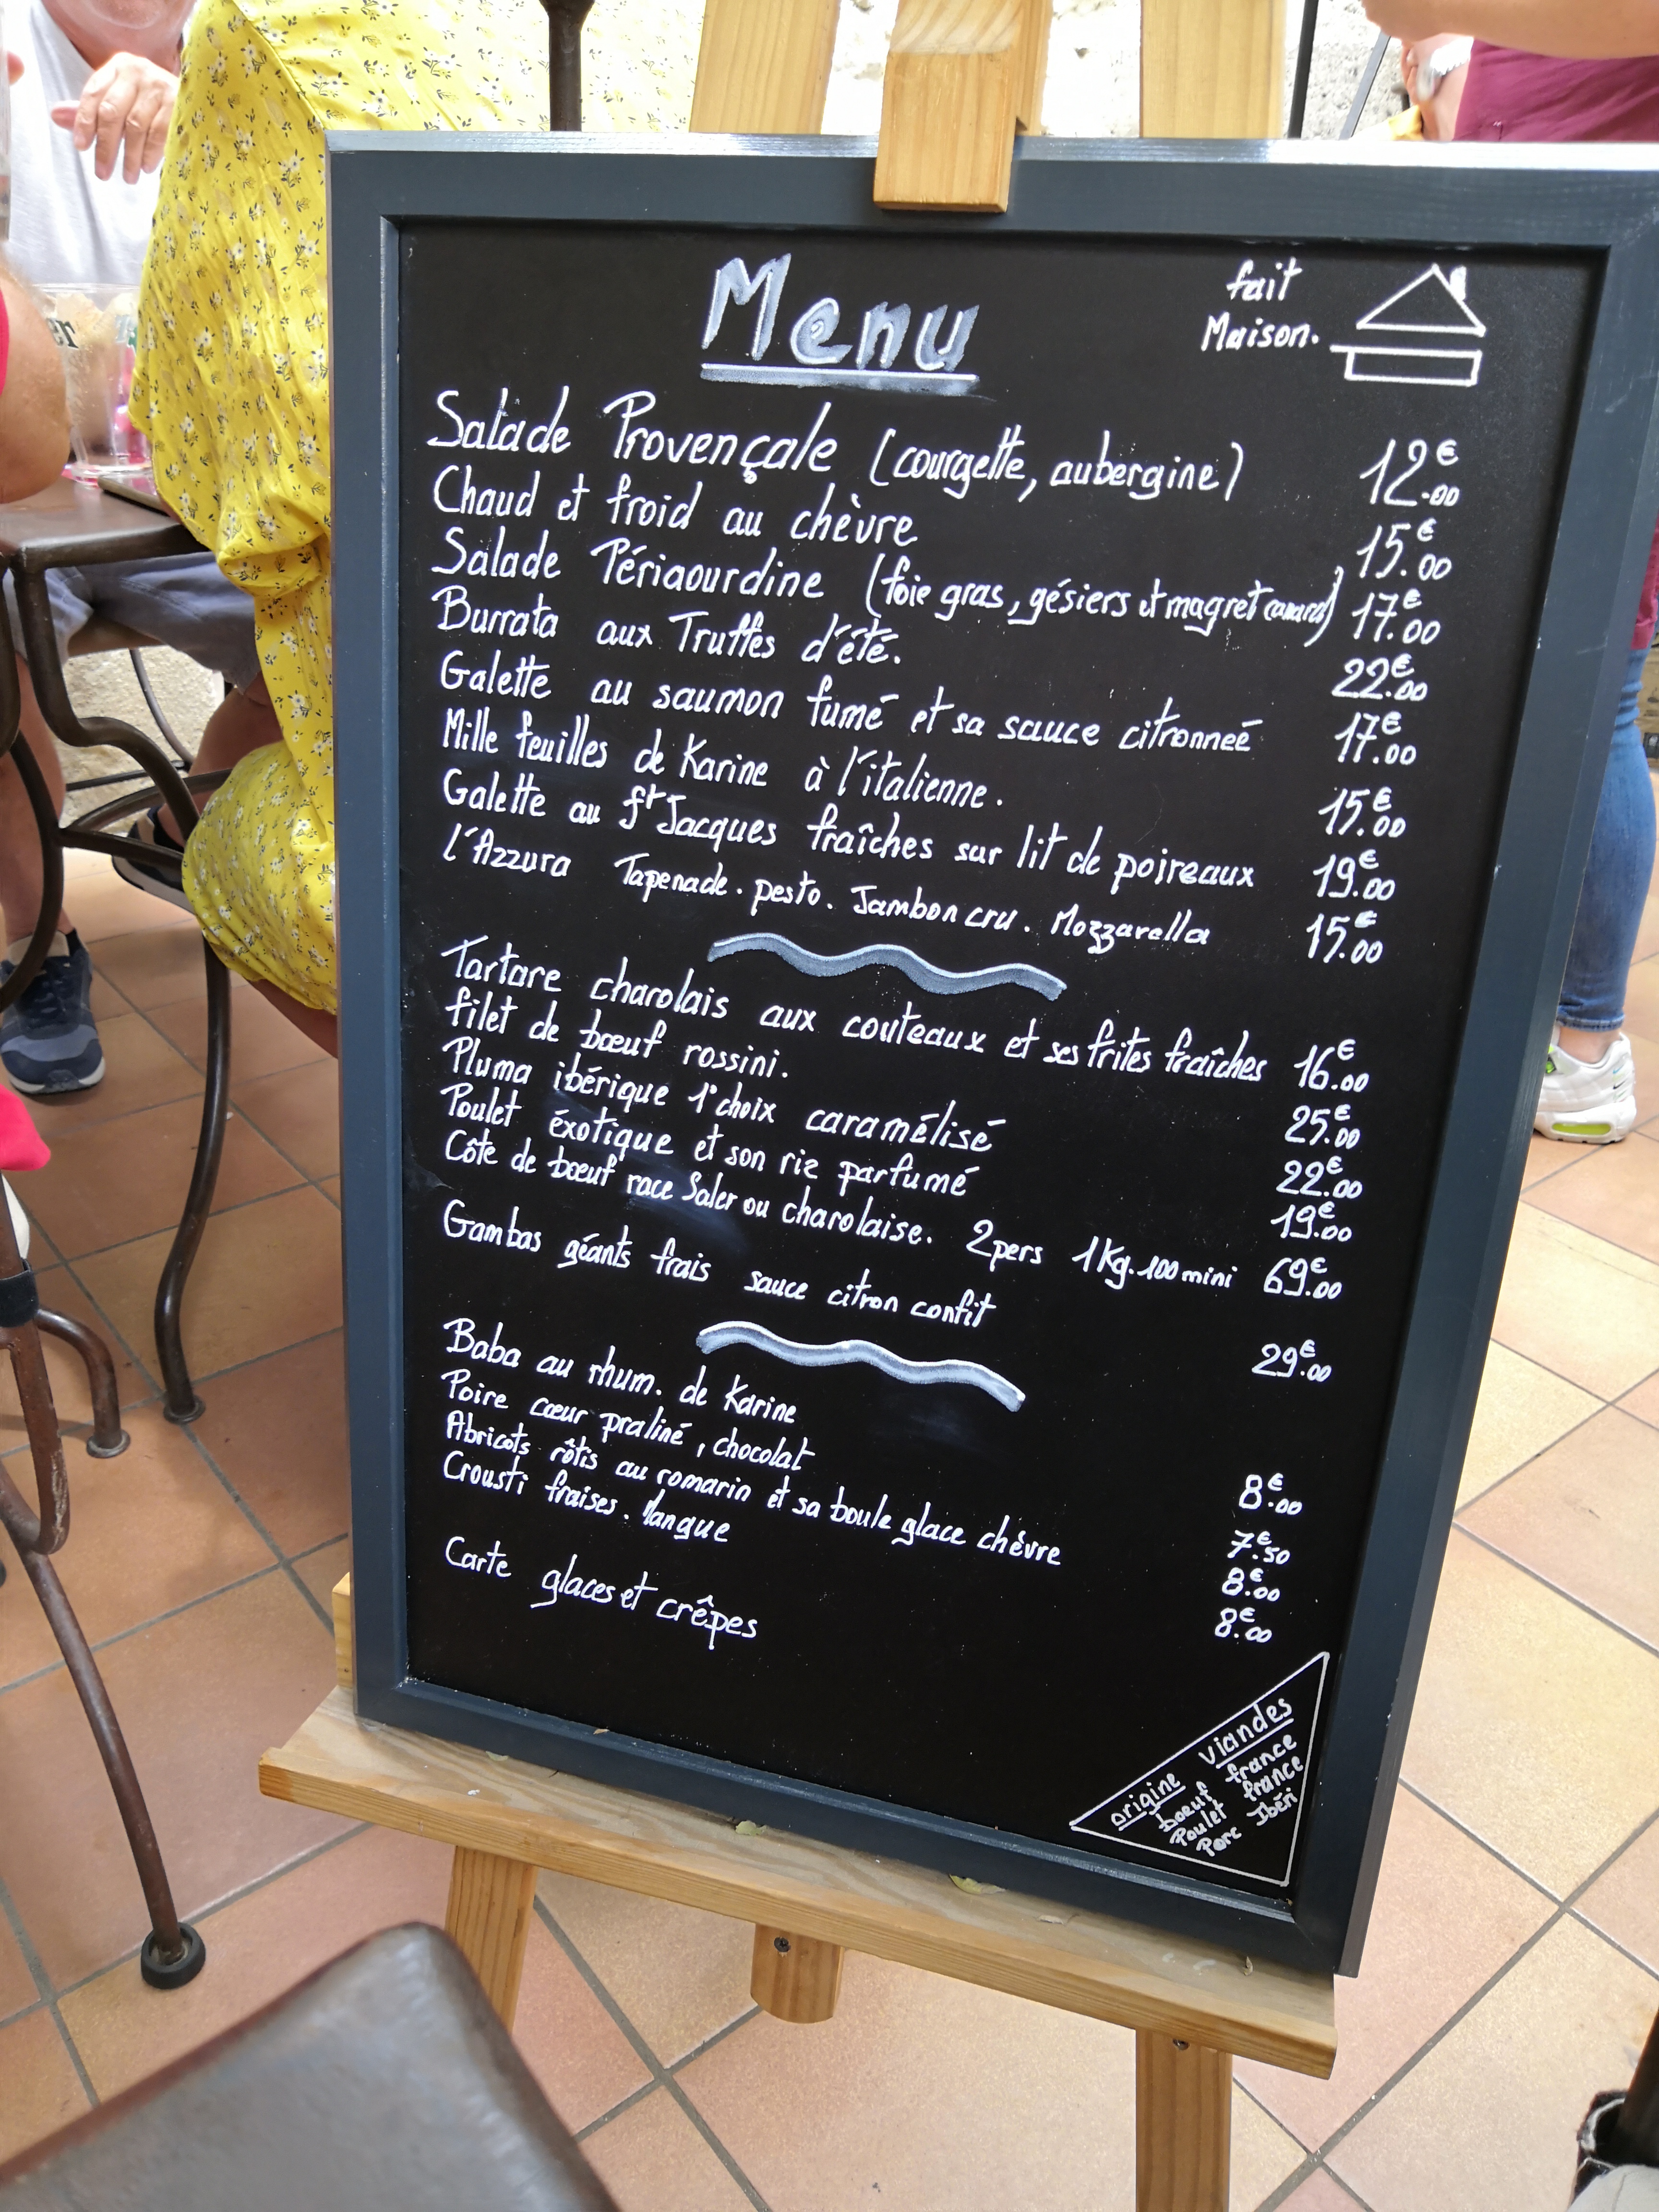 Menu
fait
Maison.
Salade Provençale (courgette, aubergine) 12€.00
Chaud et froid au chèvre 15€.00
Salade Périaourdine (foie gras, gésiers et magret canard) 17€.00
Burrata aux Truffes d'été. 22€.00
Galette au saumon fumé et sa sauce citronneé 17€.00
Mille feuilles de Karine à l'italienne. 15€.00
Galette au St Jacques fraîches sur lit de poireaux 19€.00
l'Azzura Tapenade. pesto. Jambon cru. Mozzarella 15€.00
Tartare charolais aux couteaux et ses frites fraîches 16€.00
filet de bœuf rossini. 25€.00
Pluma ibérique 1° choix caramélisé 22€.00
Poulet éxotique et son riz parfumé 19€.00
Côte de bœuf race Saler ou charolaise. 2pers 1Kg.100 mini 69€.00
Gambas géants frais sauce citron confit 29€.00
Baba au rhum. de Karine 8€.00
Poire cœur praliné, chocolat 7€.50
Abricots rôtis au romarin et sa boule glace chèvre 8€.00
Crousti fraises. Mangue 8€.00
Carte glaces et crêpes
origine Viandes
boeuf france
Poulet france
Porc Ibéri